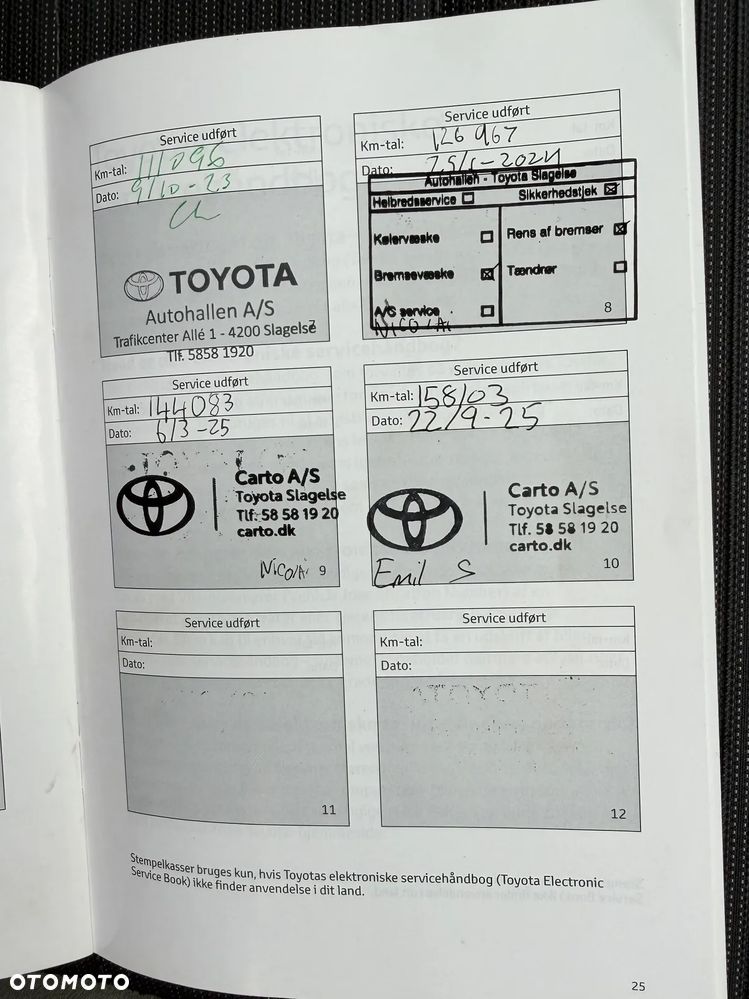 Service udført
Km-tal: 111096
Dato: 9/10-23
TOYOTA
Autohallen A/S
7
Trafikcenter Allé 1 - 4200 Slagelse
Tlf. 5858 1920
Service udført
Km-tal: 126 967
Dato: 25/1-2024
Autohallen - Toyota Slagelse
Helbredsservice
Sikkerhedstjek
Kølervæske
Rens af bremser
Bremsevæske
Tændrør
A/C service
8
Service udført
Km-tal: 144083
Dato: 6/3-25
Carto A/S
Toyota Slagelse
Tlf. 58 58 19 20
carto.dk
9
Service udført
Km-tal: 158103
Dato: 22/9-25
Carto A/S
Toyota Slagelse
Tlf. 58 58 19 20
carto.dk
10
Emil S
Service udført
Km-tal:
Dato:
11
Service udført
Km-tal:
Dato:
TOYOT
12
Stempelkasser bruges kun, hvis Toyotas elektroniske servicehåndbog (Toyota Electronic
Service Book) ikke finder anvendelse i dit land.
25
OTOMOTO